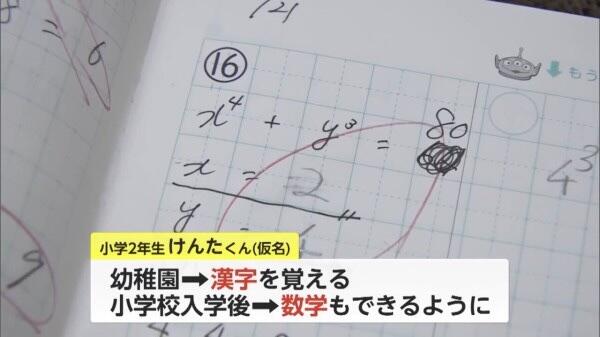 121
= 6
⑯
もう
x⁴ + y³ = 80
4³
x = 2
y = 4
9
小学2年生 けんたくん(仮名)
幼稚園➡漢字を覚える
小学校入学後➡数学もできるように